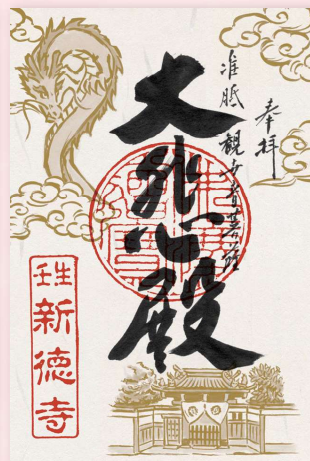 奉拝
准胝観世音菩薩
大悲心殿
壬生
新徳寺